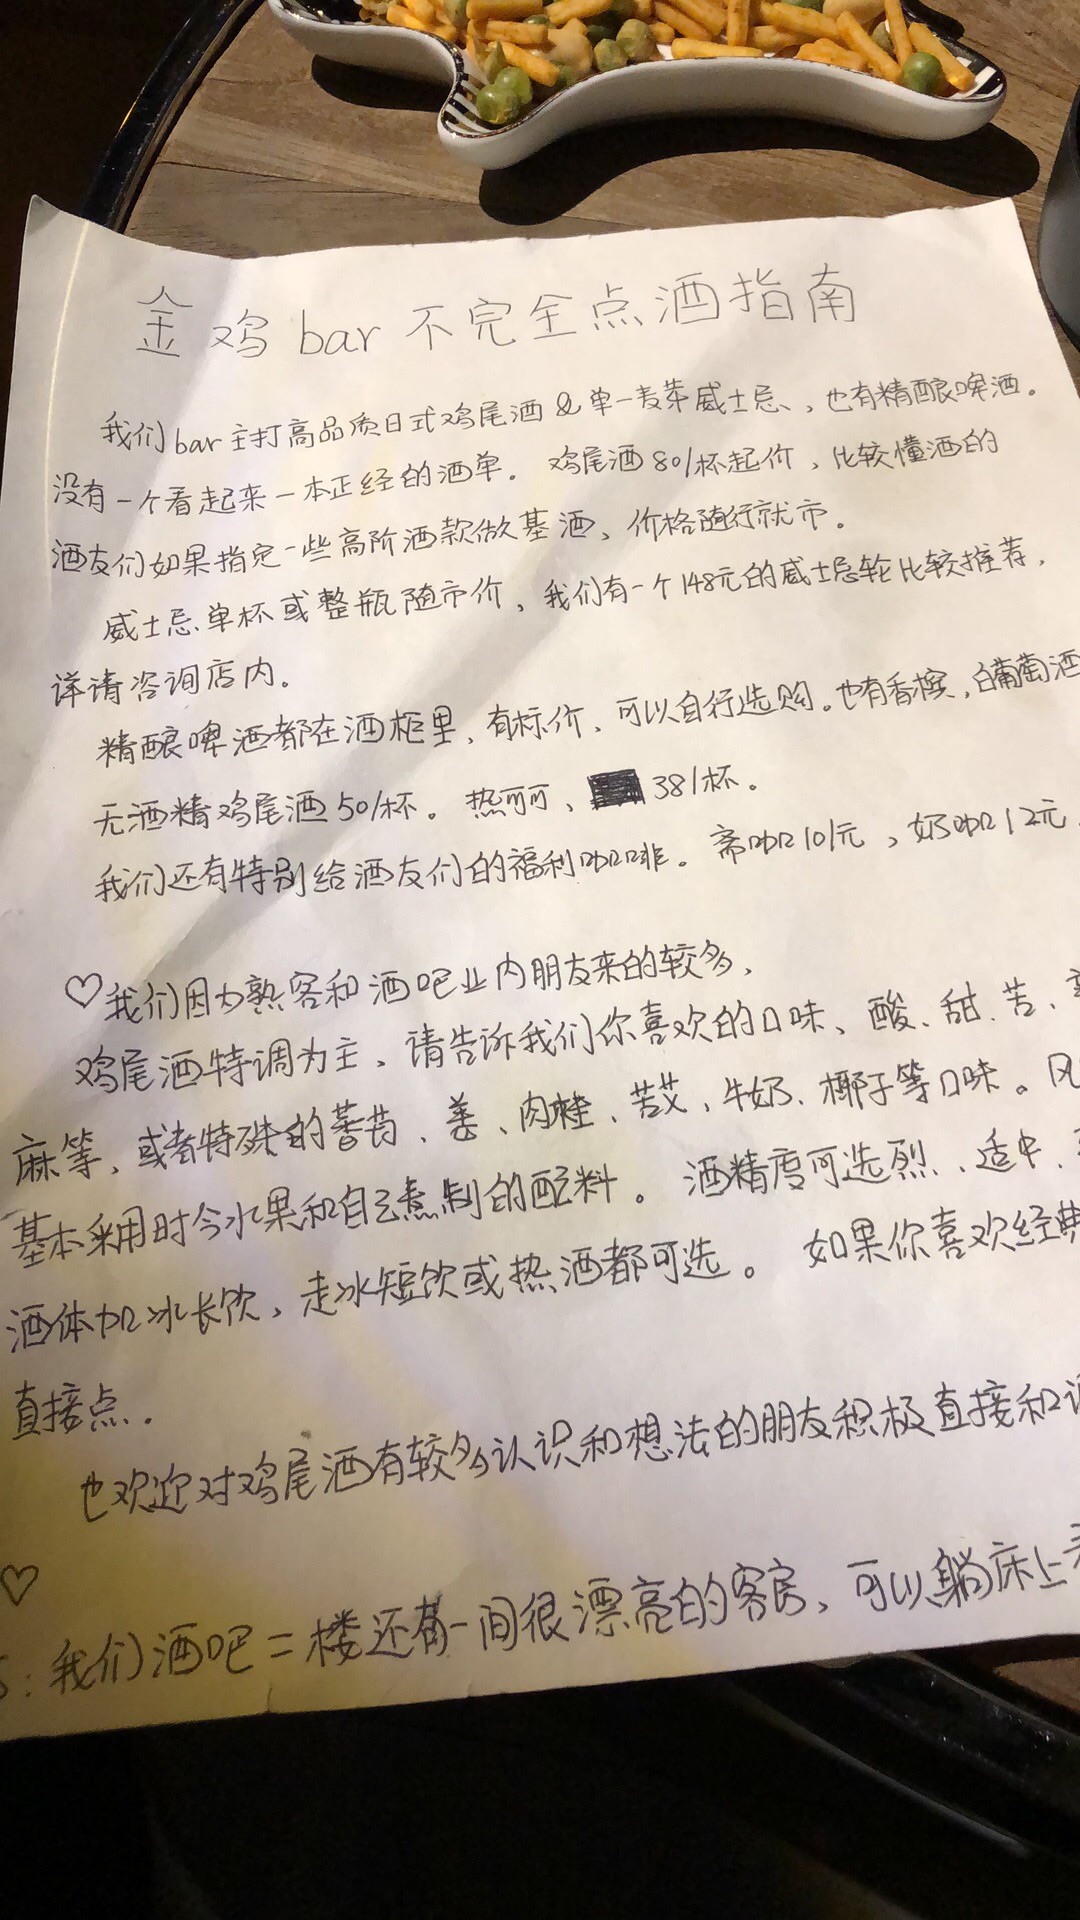 金鸡bar不完全点酒指南
我们bar主打高品质日式鸡尾酒&单一麦芽威士忌、也有精酿啤酒。
没有一个看起来一本正经的酒单。鸡尾酒80/杯起价，比较懂酒的
酒友们如果指定一些高阶酒款做基酒、价格随行就市。
威士忌单杯或整瓶随市价，我们有一个148元的威士忌轮比较推荐，
详请咨询店内。
精酿啤酒都在酒柜里、有标价、可以自行选购。也有香槟，白葡萄酒
无酒精鸡尾酒50/杯。热可可、38/杯。
我们还有特别给酒友们的福利咖啡。斋咖10/元，奶咖12元
♡我们因为熟客和酒吧业内朋友来的较多、
鸡尾酒特调为主、请告诉我们你喜欢的口味、酸、甜、苦、
麻等、或者特殊的蕃茄、姜、肉桂、苦艾、牛奶、椰子等口味。风
基本采用时令水果和自己煮制的配料。酒精度可选烈、适中、
酒体加冰长饮，走冰短饮或热酒都可选。如果你喜欢经典
直接点.
也欢迎对鸡尾酒有较多认识和想法的朋友积极直接和
♡
:我们酒吧二楼还有一间很漂亮的客房，可以躺床上